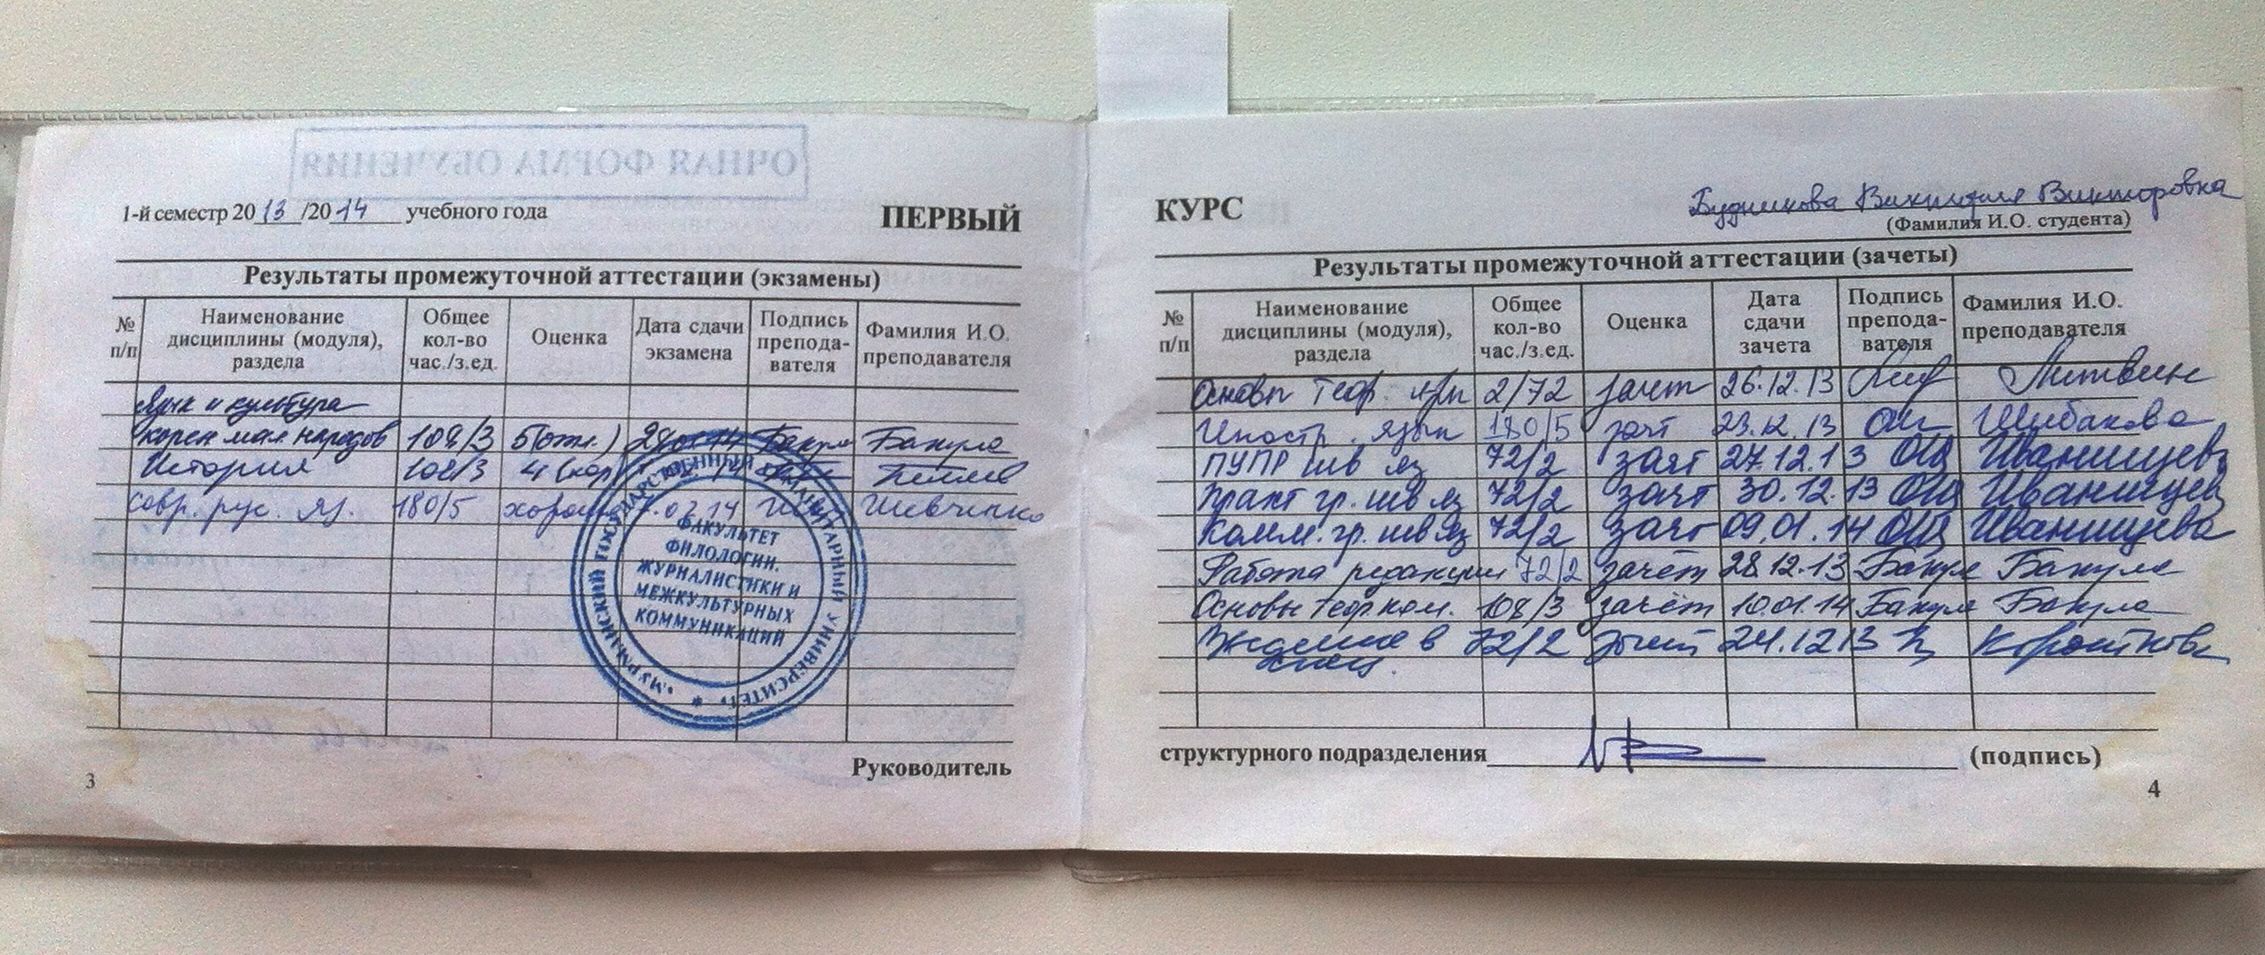 ОЧНАЯ ФОРМА ОБУЧЕНИЯ
1-й семестр 2013/2014 учебного года
ПЕРВЫЙ
Результаты промежуточной аттестации (экзамены)
№ п/п Наименование дисциплины (модуля), раздела Общее кол-во час./з.ед. Оценка Дата сдачи экзамена Подпись препода-вателя Фамилия И.О. преподавателя
Язык и культура
корен мал народов 108/3 5(отл.) Бакула Бакула
История 108/3 4 (хор)
Совр. рус. яз. 180/5 хорошо 07 14 Шевченко
МУРМАНСКИЙ ГОСУДАРСТВЕННЫЙ ГУМАНИТАРНЫЙ УНИВЕРСИТЕТ
ФАКУЛЬТЕТ
ФИЛОЛОГИИ,
ЖУРНАЛИСТИКИ И
МЕЖКУЛЬТУРНЫХ
КОММУНИКАЦИЙ
Руководитель
3
КУРС
Будникова Виктория Викторовна
(Фамилия И.О. студента)
Результаты промежуточной аттестации (зачеты)
№ п/п Наименование дисциплины (модуля), раздела Общее кол-во час./з.ед. Оценка Дата сдачи зачета Подпись препода-вателя Фамилия И.О. преподавателя
Основы теор. 2/72 зачет 26.12.13 Литвин
Иностр. язык 180/5 зачт 23.12.13 Шибакова
ПУПР шв яз 72/2 зачт 27.12.13 Иванищева
Практ гр. шв яз 72/2 зачт 30.12.13 Иванищева
Комм. гр. шв яз 72/2 зачт 09.01.14 Иванищева
Работа редакции 72/2 зачёт 28.12.13 Бакула Бакула
Основы теор ком. 108/3 зачёт 10.01.14 Бакула Бакула
Введение в 72/2 зачет 24.12.13
спец.
структурного подразделения (подпись)
4